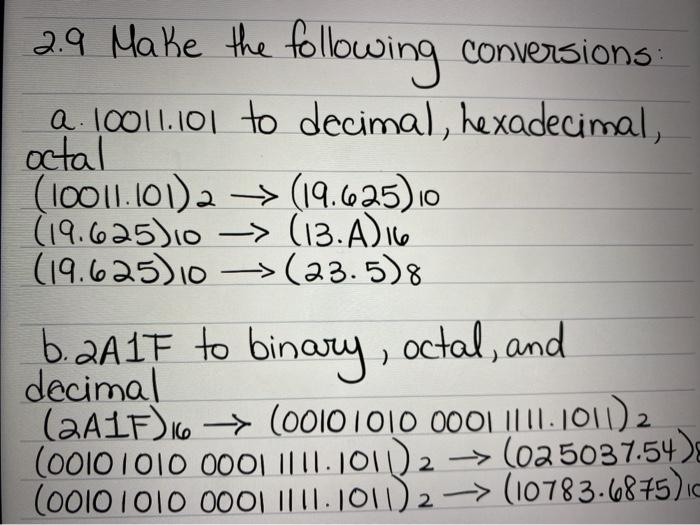 2.9 Make the following conversions:
a. 10011.101 to decimal, hexadecimal,
octal
(10011.101)2 → (19.625)10
(19.625)10 → (13.A)16
(19.625)10 → (23.5)8
b. 2A1F to binary, octal, and
decimal
(2A1F)16 → (00101010 0001 1111.1011)2
(00101010 0001 1111.1011)2 → (025037.54)8
(00101010 0001 1111.1011)2 → (10783.6875)10